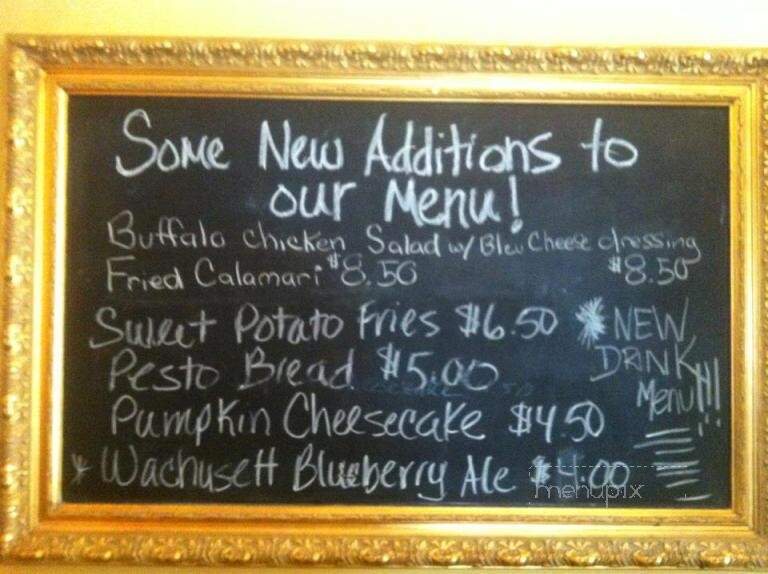 Some New Additions to
our Menu!
Buffalo Chicken Salad w/ Bleu Cheese dressing
$8.50
Fried Calamari $8.50
Sweet Potato Fries $6.50
* NEW
DRINK
Menu!!!
Pesto Bread $5.00
Pumpkin Cheesecake $4.50
* Wachusett Blueberry Ale $4.00
menupix